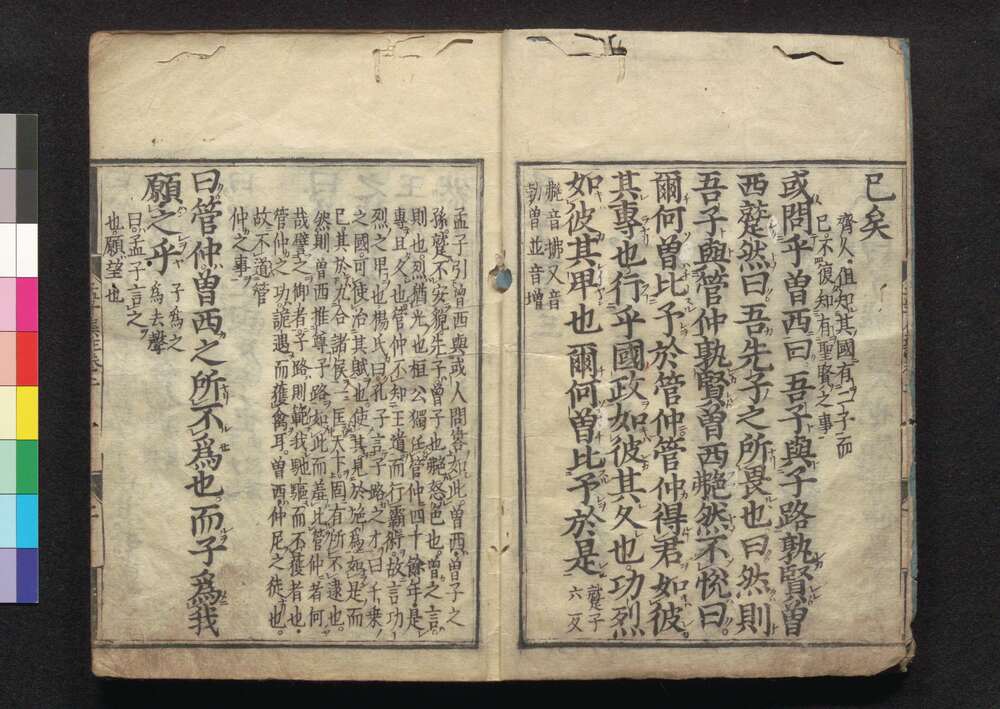 已矣
齊人但知其國有二子而
已不復知有聖賢之事
或問乎曽西曰吾子與子路孰賢曽
西蹵然曰吾先子之所畏也曰然則
吾子與管仲孰賢曽西艴然不悅曰
爾何曽比予於管仲管仲得君如彼
其專也行乎國政如彼其久也功烈
如彼其卑也爾何曽比予於是
蹵子
六反
艴音拂又音
勃曽並音増
孟子引曽西與或人問答如此曽西曽子之
孫蹵不安貌先子曽子也艴怒色也曽之言
則也烈猶光也桓公獨任管仲四十餘年是
專且久也管仲不知王道而行霸術故言功
烈之卑也楊氏曰孔子言子路之才曰千乗
之國可使治其賦也使其見於施爲如是而
已其於九合諸侯一匡天下固有所不逮也
然則曽西推尊子路如此而羞比管仲者何
哉譬之御者子路則範我馳驅而不獲者也
管仲之功詭遇而獲禽耳曽西仲尼之徒也
故不道管
仲之事
曰管仲曽西之所不爲也而子爲我
願之乎
子爲之
爲去聲
曰孟子言
也願望也